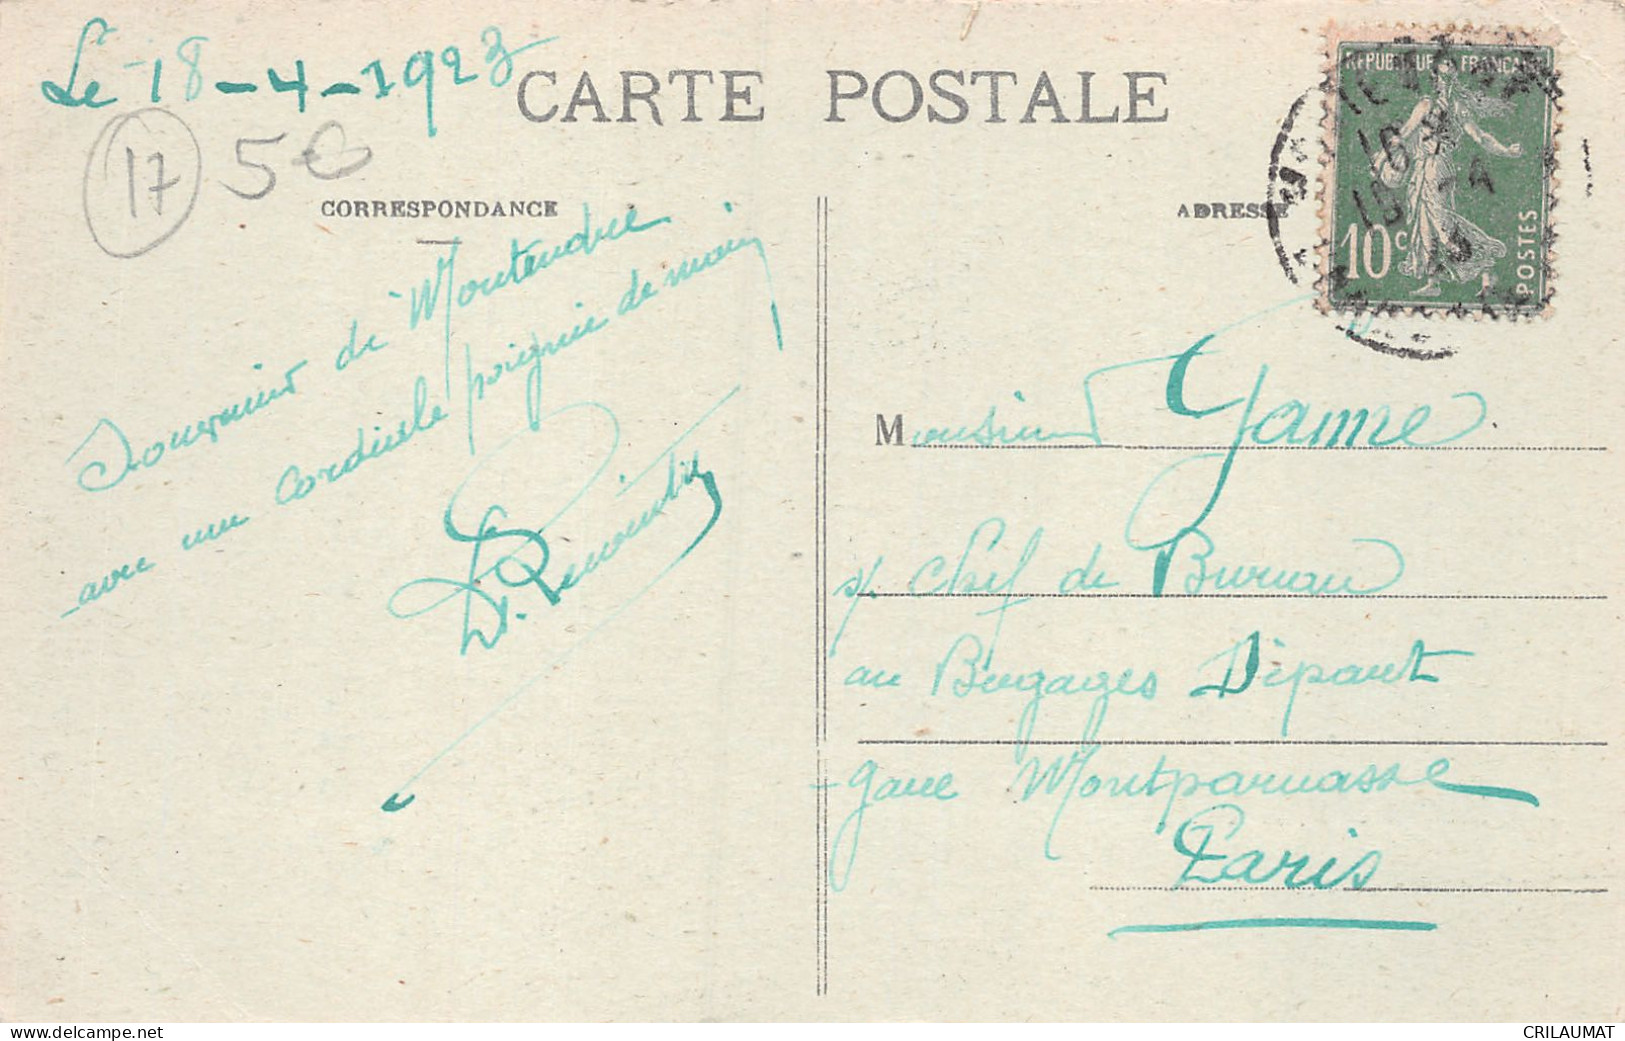 Le 18-4-1923
CARTE POSTALE
17
5€
CORRESPONDANCE
ADRESSE
REPUBLIQUE FRANÇAISE
10c
POSTES
16
-4
23
Souvenir de Montendre
avec une cordiale poignée de main
Monsieur Game
s/. Chef de Bureau
au Bagages Départ
gare Montparnasse
Paris
delcampe.net
CRILAUMAT